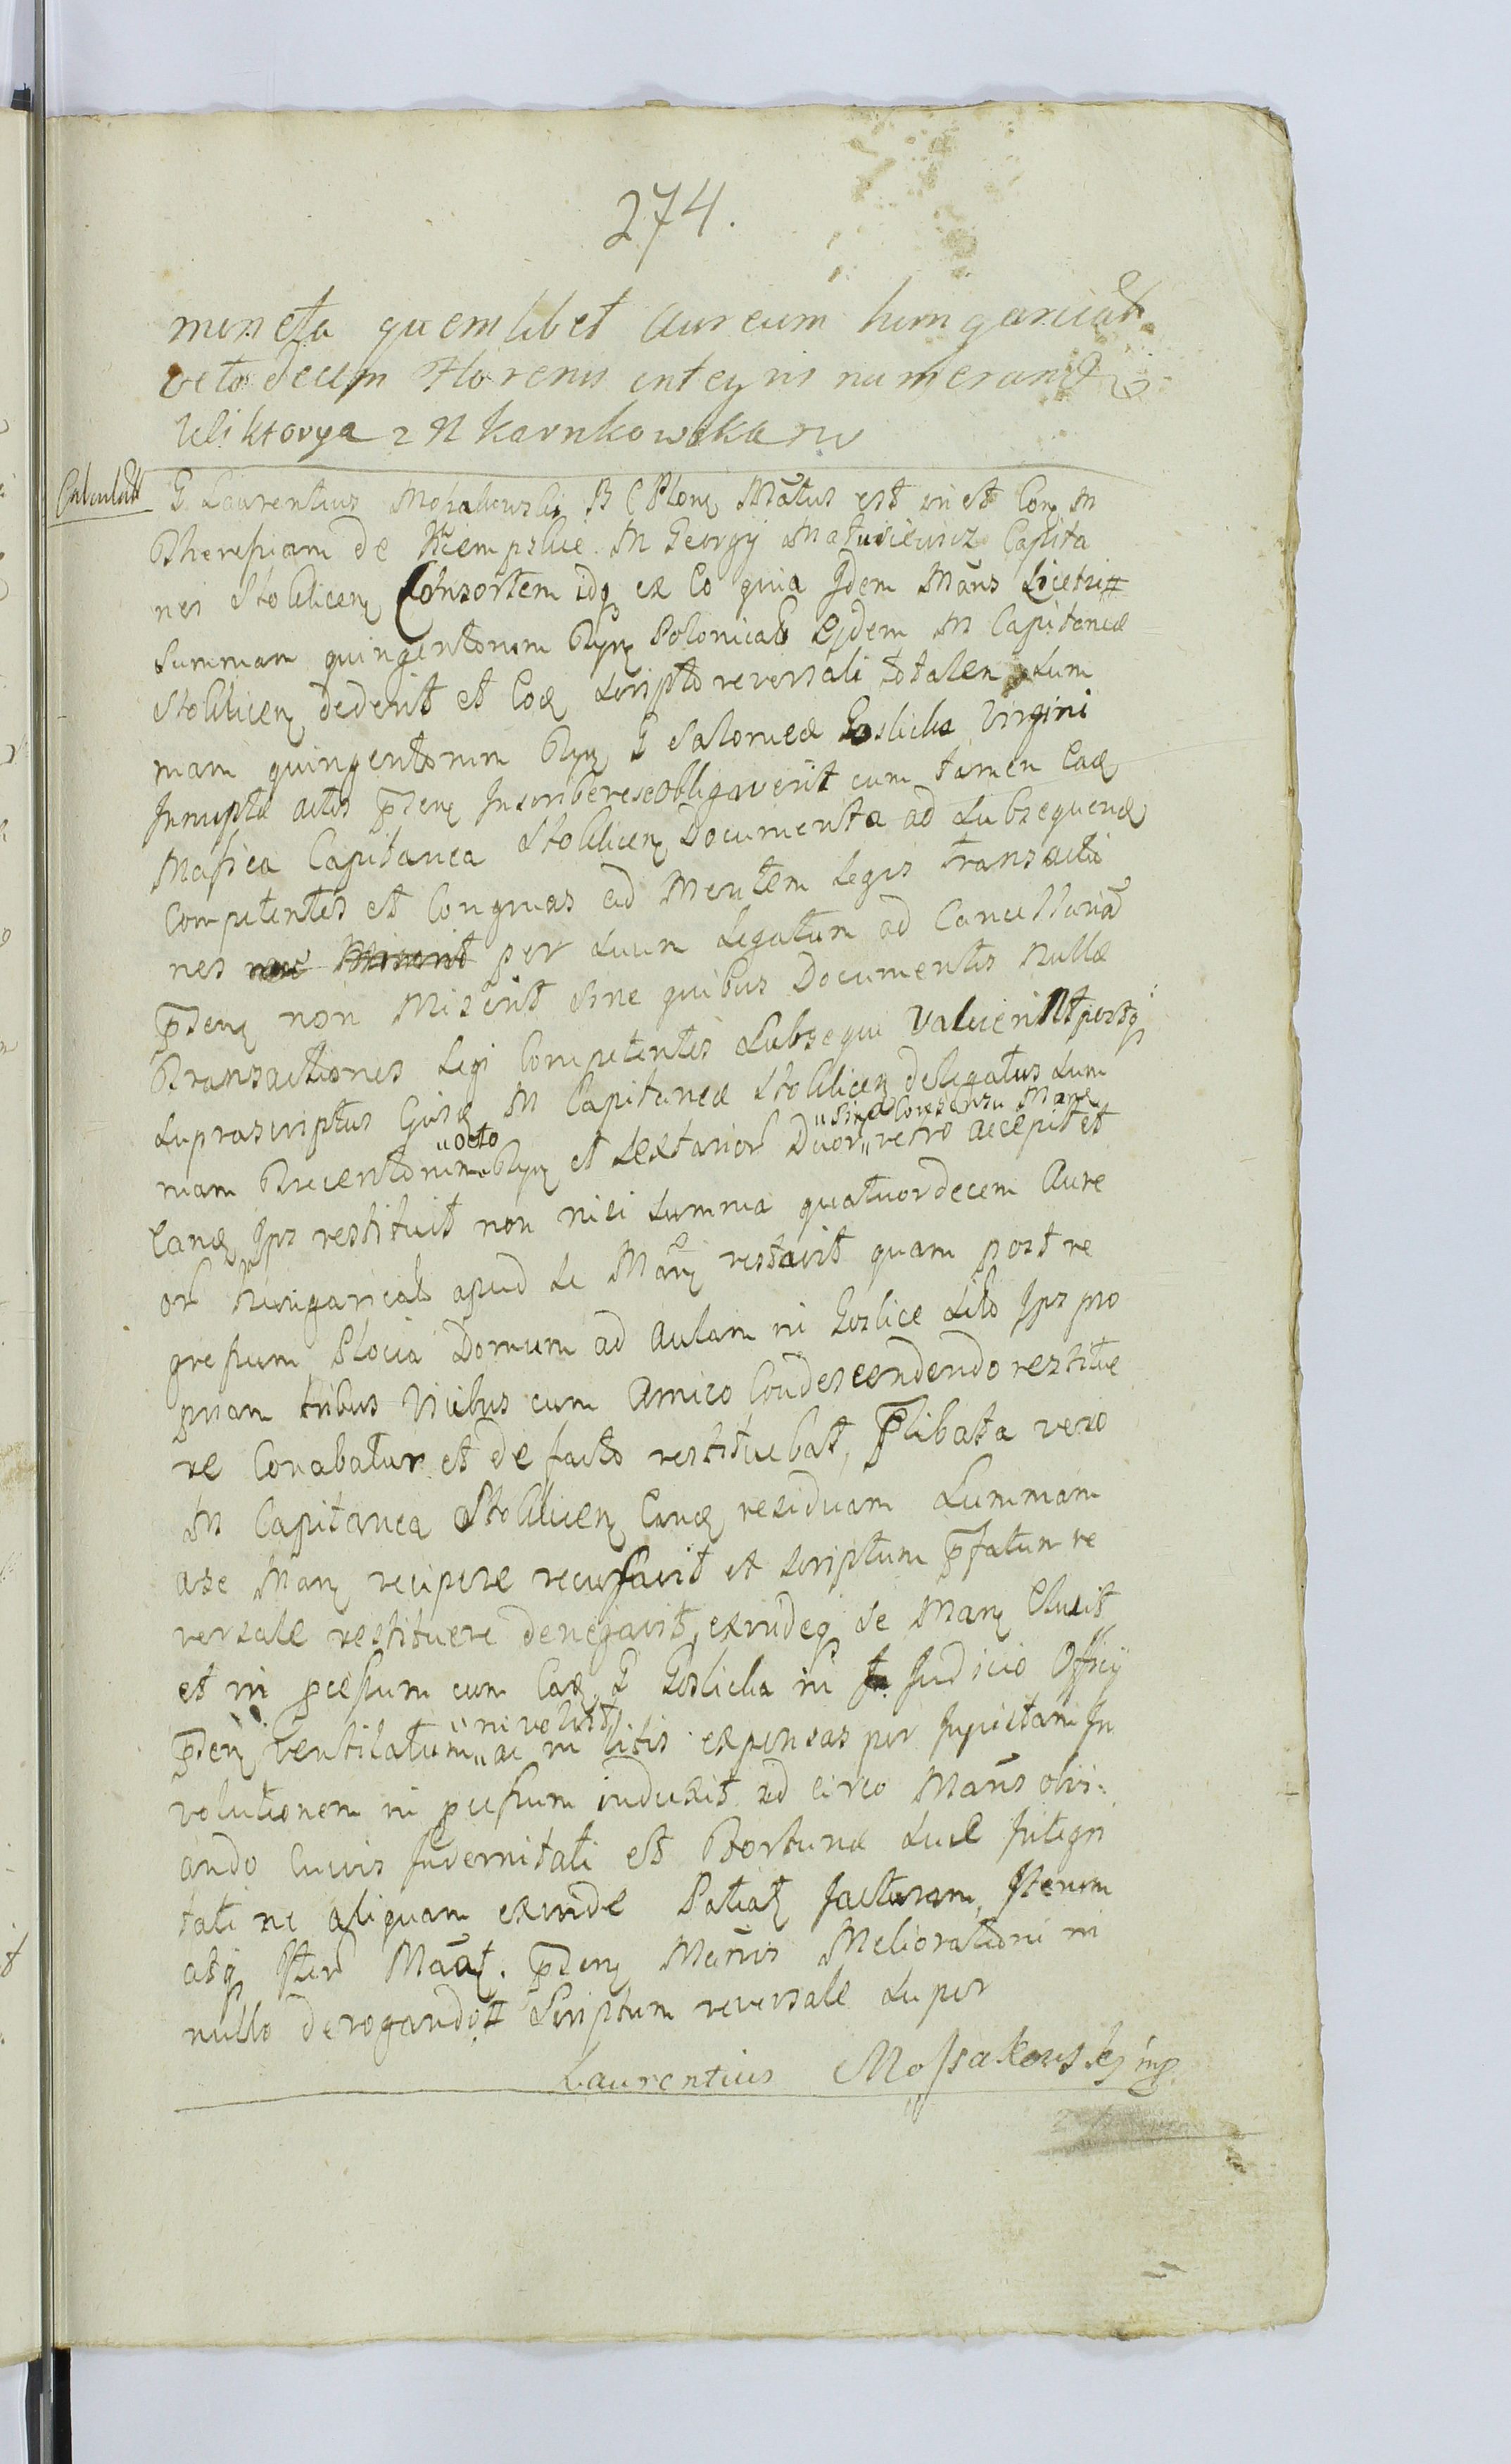 274.
moneta quemlibet aureum hungarical
octodecim Florenis integris numerand
Wiktorya z N Karnkowska mp
G Laurentius Mossakowski B C Plonę Mātus est in et Conę M
Theressiam de Kiempskie M Georgy Matusiewicz Capita
nei Stoklicenę Consortem idq ex Eo quia Jdem Māns Licet
Summam quingentorum Polonical Ejdem M Capitanea
Stoklicenę dederit et Eod Scripto reversali totalem Sum
mam quingentorum G Salomea Goslicka Virgini
Jnnupta actis p̄senę Jnscriberese obligaverit cum tamen Ead
Massica Capitanea Stoklicenę Documenta ad Subsequend
Competentes et Congruas ad Mentem Legis transactio
nes per Suum Legatum ad Cancellariā
p̄senę non Miserit Sine quibus Documentis nulla
Transactiones Legi Competentes Subsequi Valuerint postq
Suprascriptus Ejusd M Capitanea Stoklicenę delegatus Sum
„Sine Consensu Manę
„octo
mam Trecentorum„ et Sextarior Duor„ retro accepit et
Eand Jps restituit non nisi Summa quatuordecem Aure
or Hungarical apud Se Manę restavit quam post re
gressum Plocia Domum ad Aulam in Goslice Sito Jps pro
priam tribus Vicibus cum Amico Condescendendo restitue
re Conabatur et de facto restituebat, p̄libata vero
M Capitanea Stoklicenę Eand residuam Summam
a se Manę recipere recusavit et Scriptum p̄fatum re
versale restituere denegavit, exindeq Se Manę Elusit
et in p̄cessum cum Ead G Goslicka in Judicio Officy
„involvit
p̄senę Ventilatum„ ac in litis expensas per Jnjustam Jn
volutionem in p̄cessum induxit id circo Māns obvi
ando Cuivis Jndemnitati et Fortuna Suae Jntegri
tati ne aliquam exinde Patiatę Jacturam, Jterum
atq Jterū Māaę. p̄senę Manis Melioratione in
nullo derogando Scriptum reversale Super
Laurentius Mossakowskj mp